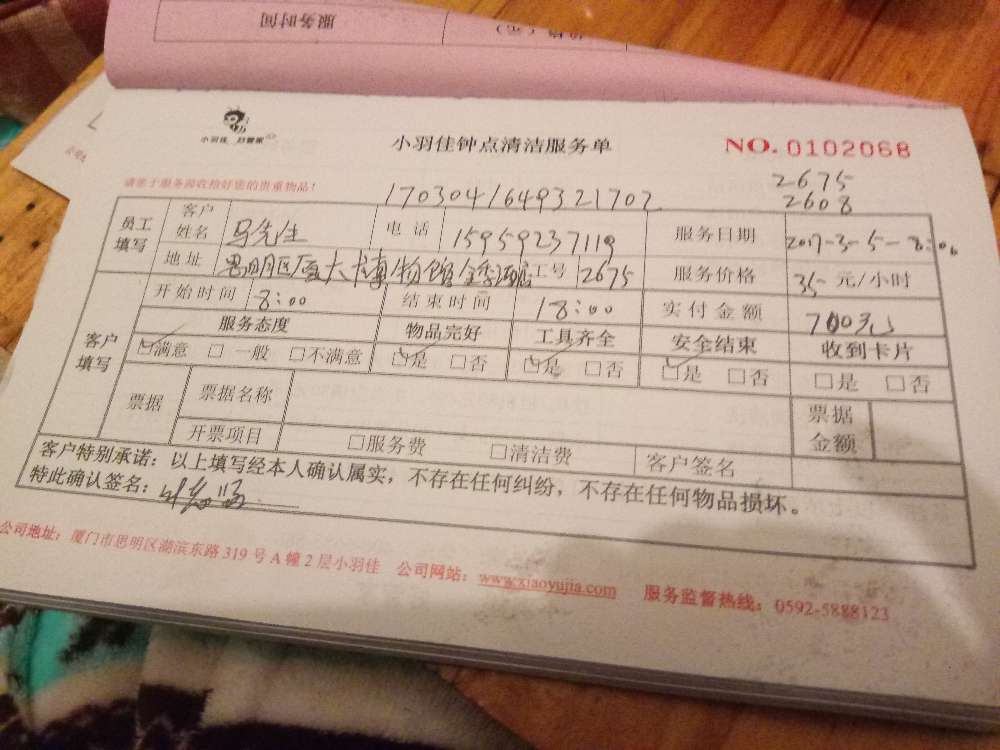 服务时间
价格（元）
小羽佳 好管家
小羽佳钟点清洁服务单
NO. 0102068
请您于服务前收拾好您的贵重物品！
1703041649321702
2675
2608
员工填写 客户姓名 马先生 电话 15959237119 服务日期 2017-3-5-8:00
地址 思明区厦大博物馆 工号 2675 服务价格 35 元/小时
客户填写 开始时间 8:00 结束时间 18:00 实付金额 700元
服务态度 物品完好 工具齐全 安全结束 收到卡片
☑满意 □一般 □不满意 ☑是 □否 ☑是 □否 ☑是 □否 □是 □否
票据 票据名称 票据金额
开票项目 □服务费 □清洁费 客户签名
客户特别承诺：以上填写经本人确认属实，不存在任何纠纷，不存在任何物品损坏。
特此确认签名：
公司地址：厦门市思明区湖滨东路 319 号 A 幢 2 层小羽佳 公司网站：www.xiaoyujia.com 服务监督热线：0592-5888123